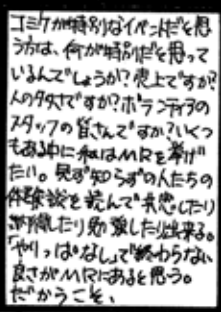 コミケが特別なイベントだと思
う方は、何が特別だと思って
いるんでしょうか?売上ですか?
人の多さですか?ボランティアの
スタッフの皆さんですか?いくつ
もある中に私はMRを挙げ
たい。見ず知らずの人たちの
体験談を読んで共感したり
納得したり勉強したり出来る。
「やりっぱなし」で終わらない
良さがMRにあると思う。
だからこそ、